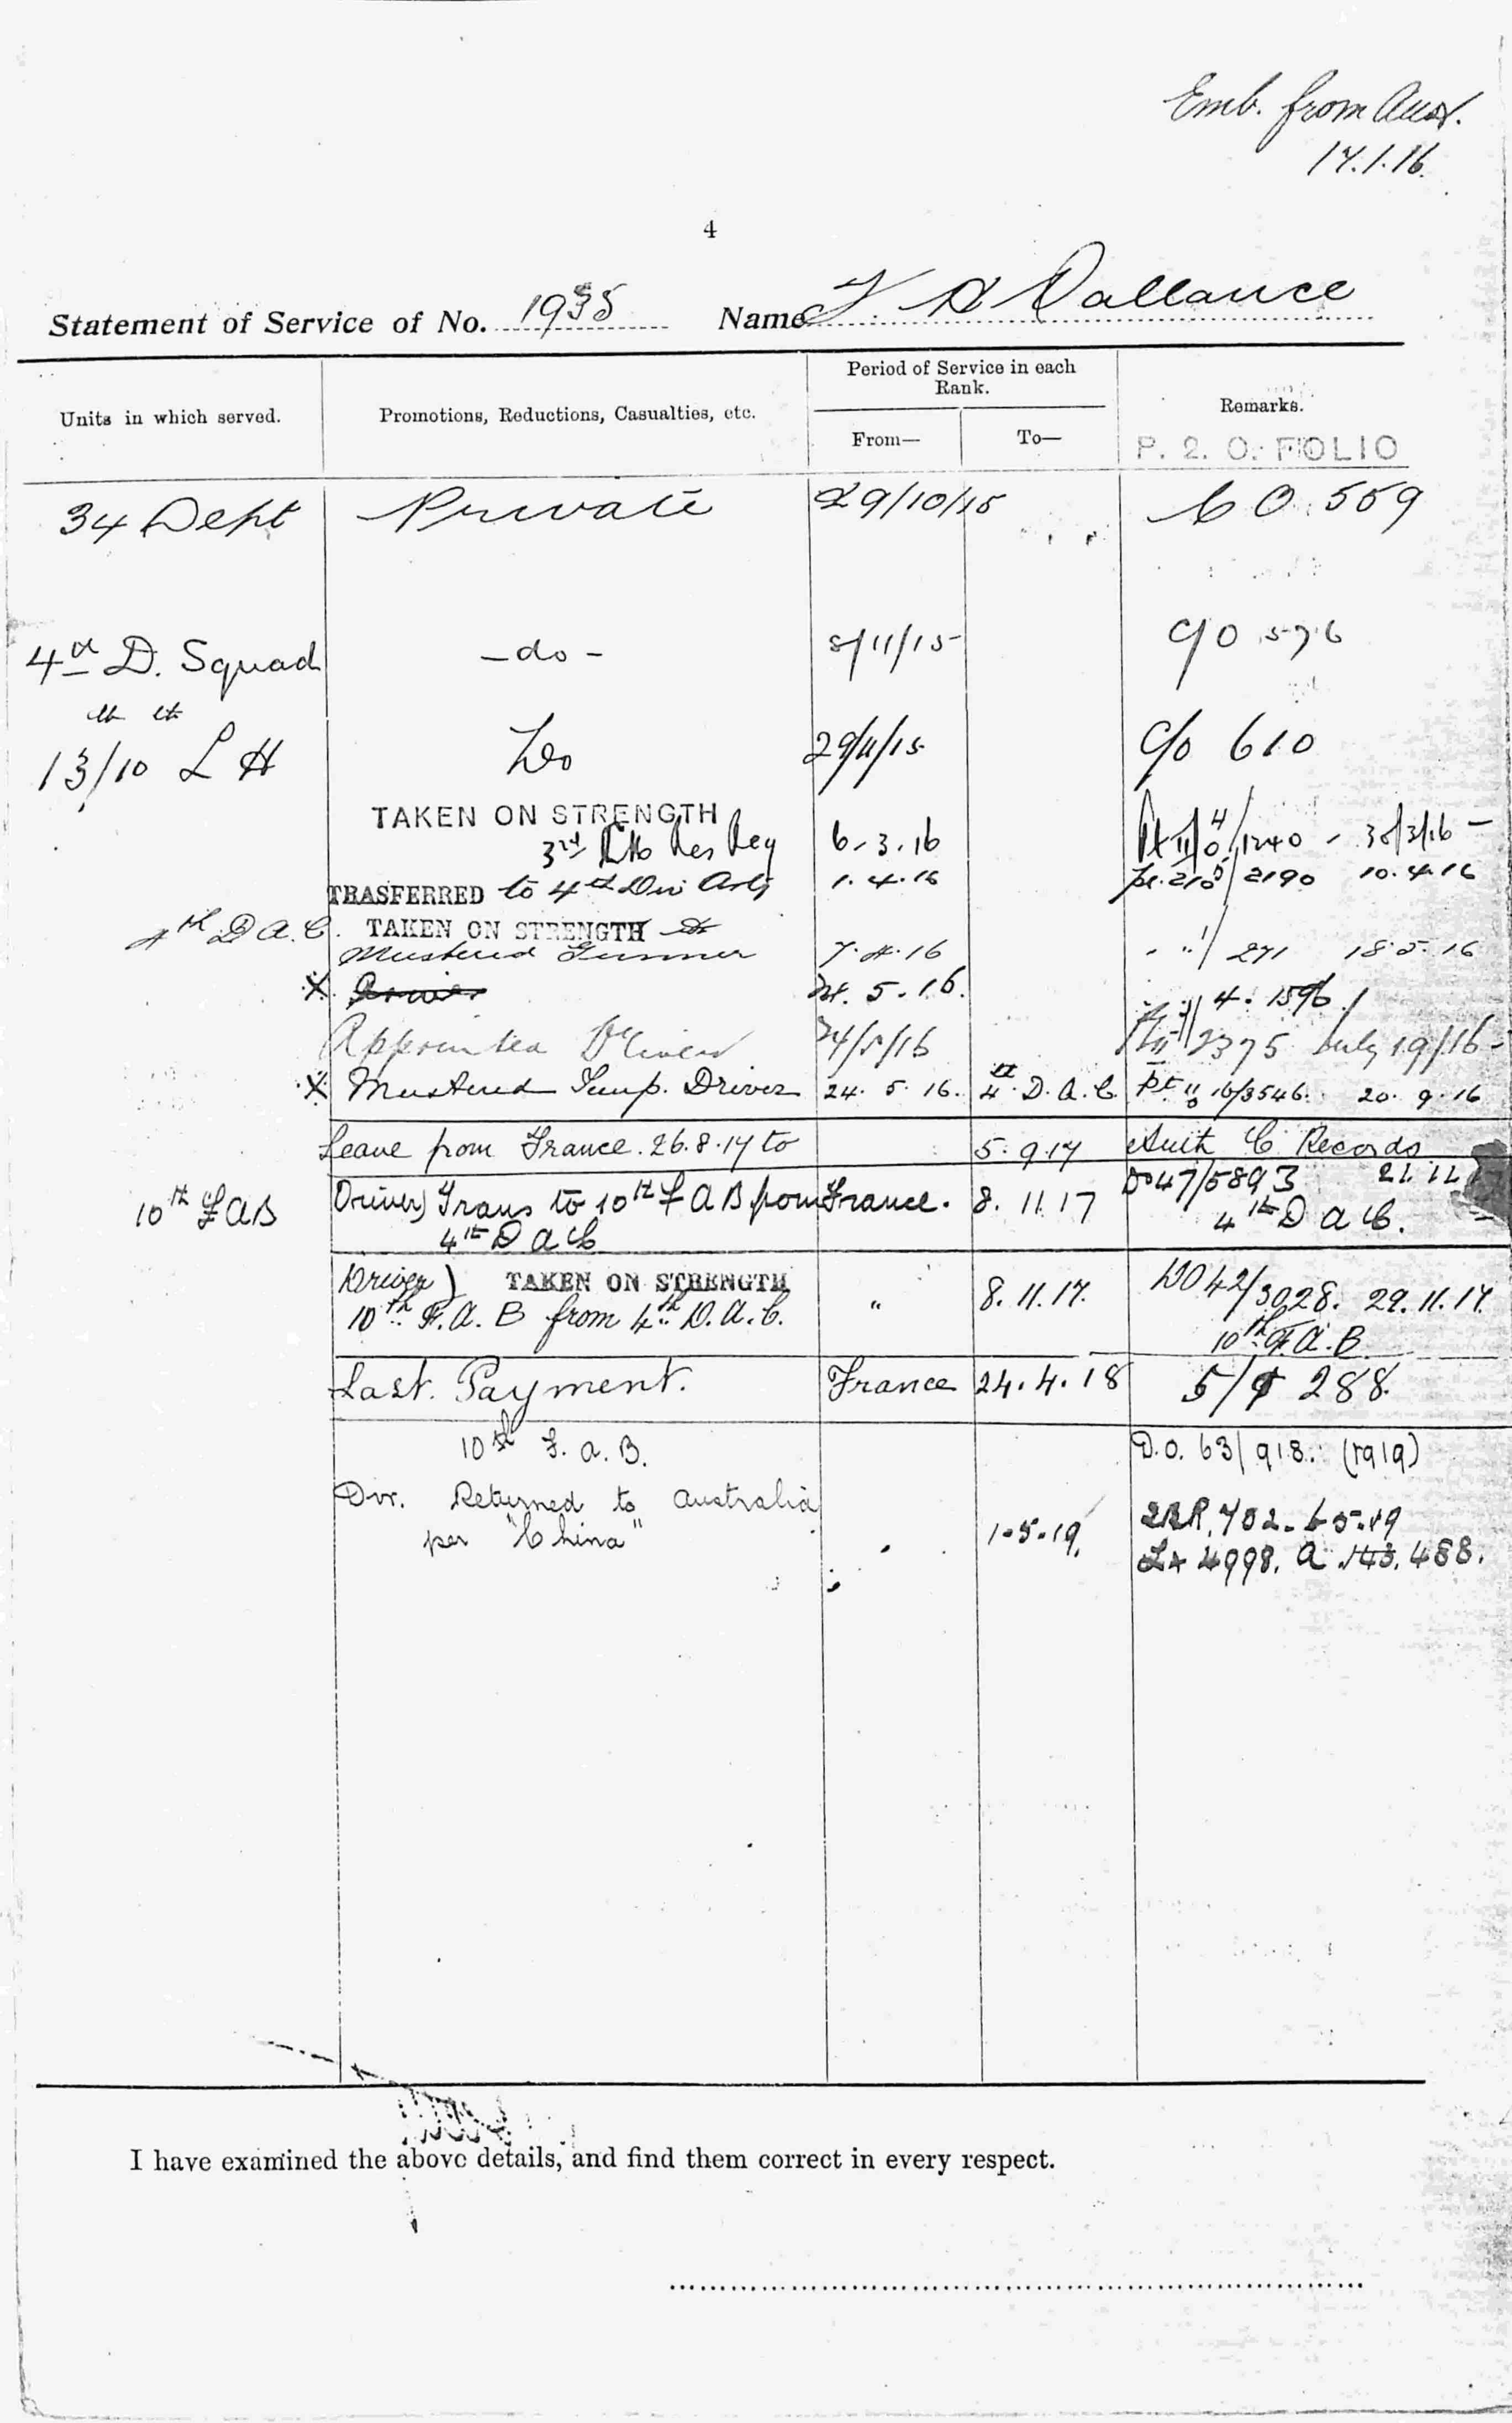 Emb. from Aust.
17.1.16.
4
Statement of Service of No. 1935 Name Vallance
Units in which served. Promotions, Reductions, Casualties, etc. Period of Service in each Rank. From— To— Remarks.
P. 2. O. FOLIO
34 Dept Private 29/10/15 559
4th D. Squad -do- 8/11/15 576
13/10 L H Do 29/11/15 C/o 610
TAKEN ON STRENGTH
3rd Res Reg 6.3.16 1240 - 30/3/16 -
TRASFERRED to 4th Div Arty 1.4.16 2190 10.4.16
4th D A.C. TAKEN ON STRENGTH
Mustered Gunner 7.4.16 271 18.5.16
X Driver 24.5.16. 4. 1596
Appointed Driver 24/5/16 2375 July 19/16 -
X Mustered Temp. Driver 24.5.16. 4th D.A.C. Pt II 16/3546. 20.9.16
Leave from France. 26.8.17 to 5.9.17 Auth C Records
10th F A B Driver) Trans to 10th F A B from France. 8.11.17 DO 47/5893 21.12
4th D A C 4th D A C.
Driver) TAKEN ON STRENGTH " 8.11.17. DO 42/3028. 29.11.17.
10th F.A.B from 4th D.A.C. 10th F.A.B.
Last. Payment. France 24.4.18 288.
10th F.A.B. D.O. 63/918. (1919)
Dvr. Returned to Australia
per "China" 1-5-19. 488.
I have examined the above details, and find them correct in every respect.